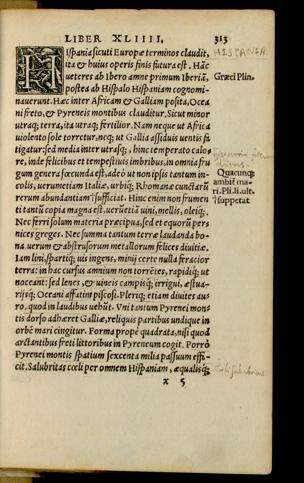 LIBER XLIIII. 313
HISPANIA.
HIspania sicuti Europæ terminos claudit,
ita & huius operis finis futura est. Hãc
ueteres ab Ibero amne primum Iberiã,
Græci Plin.
postea ab Hispalo Hispaniam cognomi-
nauerunt. Hæc inter Africam & Galliam posita, Ocea
ni freto, & Pyreneis montibus clauditur. Sicut minor
utraq; terra, ita utraq; fertilior. Nam neque ut Africa
uiolento sole torretur, neq; ut Gallia assiduis uentis fa
tigatur: sed media inter utrasq;, hinc temperato calo
re, inde felicibus et tempestiuis imbribus, in omnia fru
gum genera fœcunda est, adeò ut non ipsis tantum in-
Quacunq;
colis, uerumetiam Italiæ, urbiq; Rhomanæ cunctarũ
ambit ma-
rerum abundantiam sufficiat. Hinc enim non frumen
ri. Pli. li. ult.
ti tantũ copia magna est, uerùetiã uini, mellis, oleiq;.
suppetat
Nec ferri solum materia præcipua, sed et equorũ per
nices greges. Nec summa tantum terræ laudanda bo-
na. uerum & abstrusorum metallorum felices diuitiæ.
Iam lini, spartiq; uis ingens, minij certe nulla feracior
terra: in hac cursus amnium non torrẽtes, rapidiq; ut
noceant: sed lenes, & uineis campisq; irrigui, æstua-
rijsq; Oceani affatim piscosi. Pleriq; etiam diuites au-
ro, quod in laudibus uehũt. Vni tantum Pyrenei mon-
tis dorso adhæret Galliæ, reliquis partibus undique in
orbẽ mari cingitur. Forma propè quadrata, nisi quod
arctantibus freti littoribus in Pyreneum cogit. Porrò
Pyrenei montis spatium sexcenta milia passuum effi-
cit. Salubritas cœli per omnem Hispaniam, æqualisq;
x 5